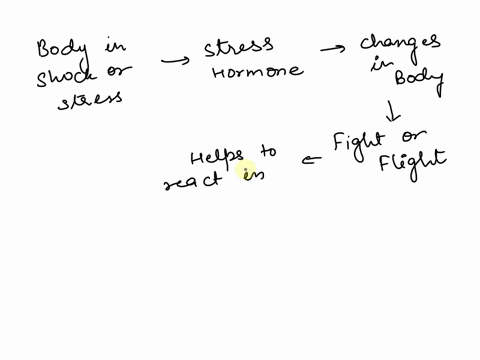 Body in
shock or
stress
→ stress
Hormone
→ changes
in
Body
↓
Fight or
Flight
← Helps to
react in